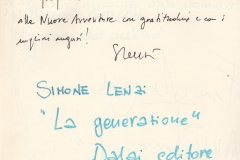 alle Nuove Avventure con gratitudine e con i
migliori auguri!
SIMONE LENZI
"La generazione"
Dalai editore